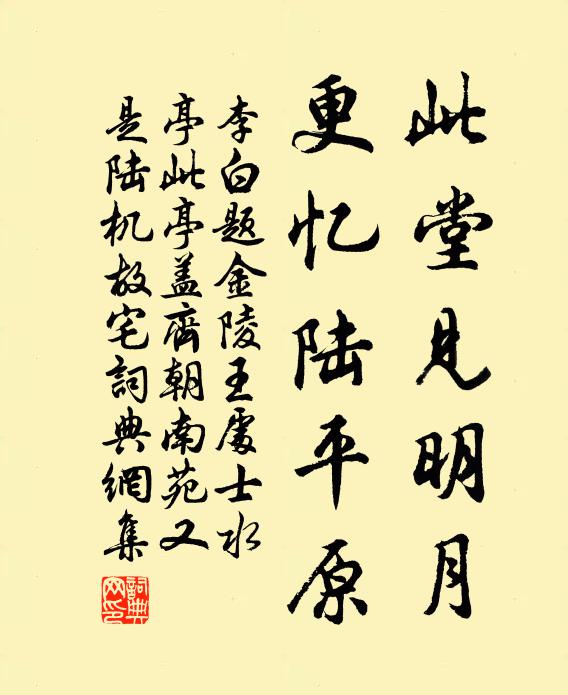 此堂见明月
更忆陆平原
李白题金陵王处士水
亭此亭盖齐朝南苑又
是陆机故宅词典网集
詞典
网印